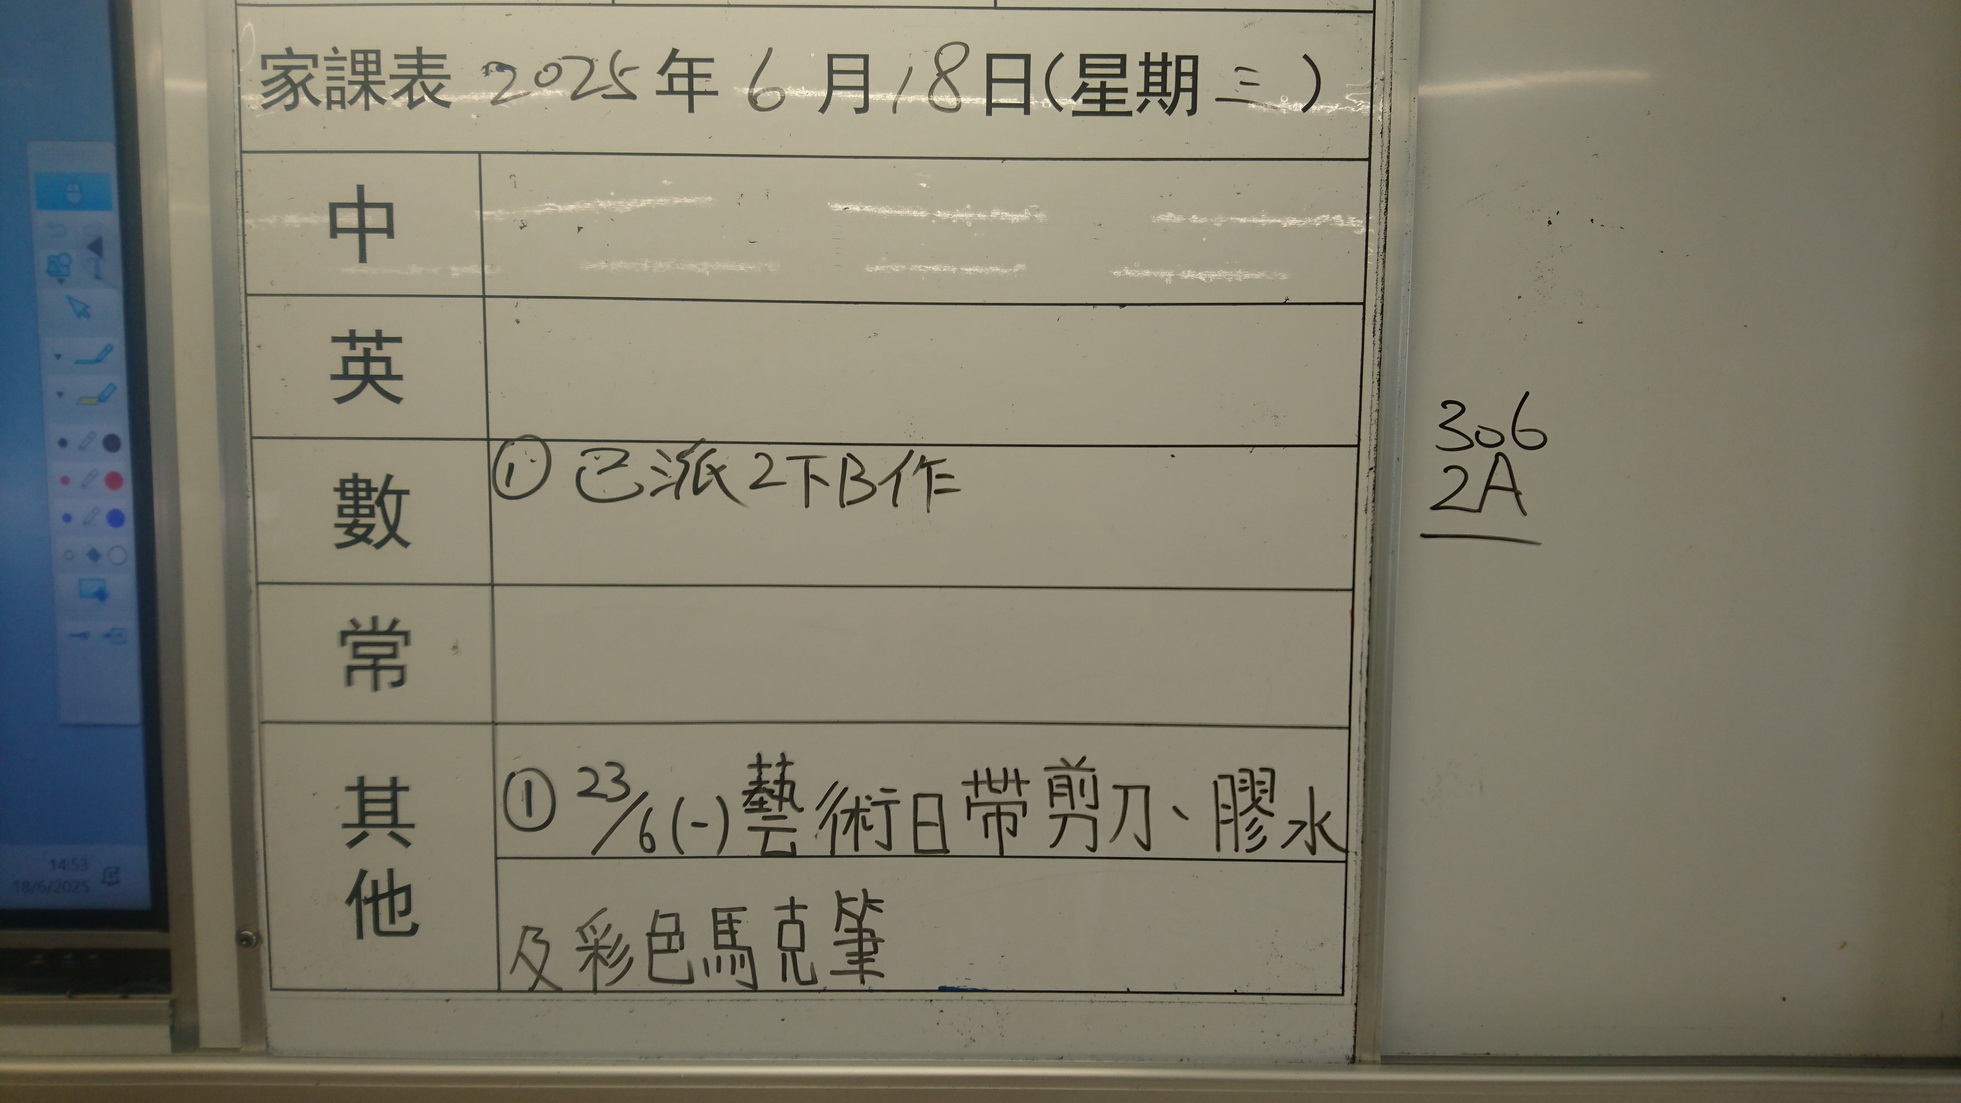 家課表 2025年6月18日(星期三)
中
英
數
① 已派2下B作
常
其他
① 23/6(一)藝術日帶剪刀、膠水
及彩色馬克筆
306
2A
14:53
18/6/2025